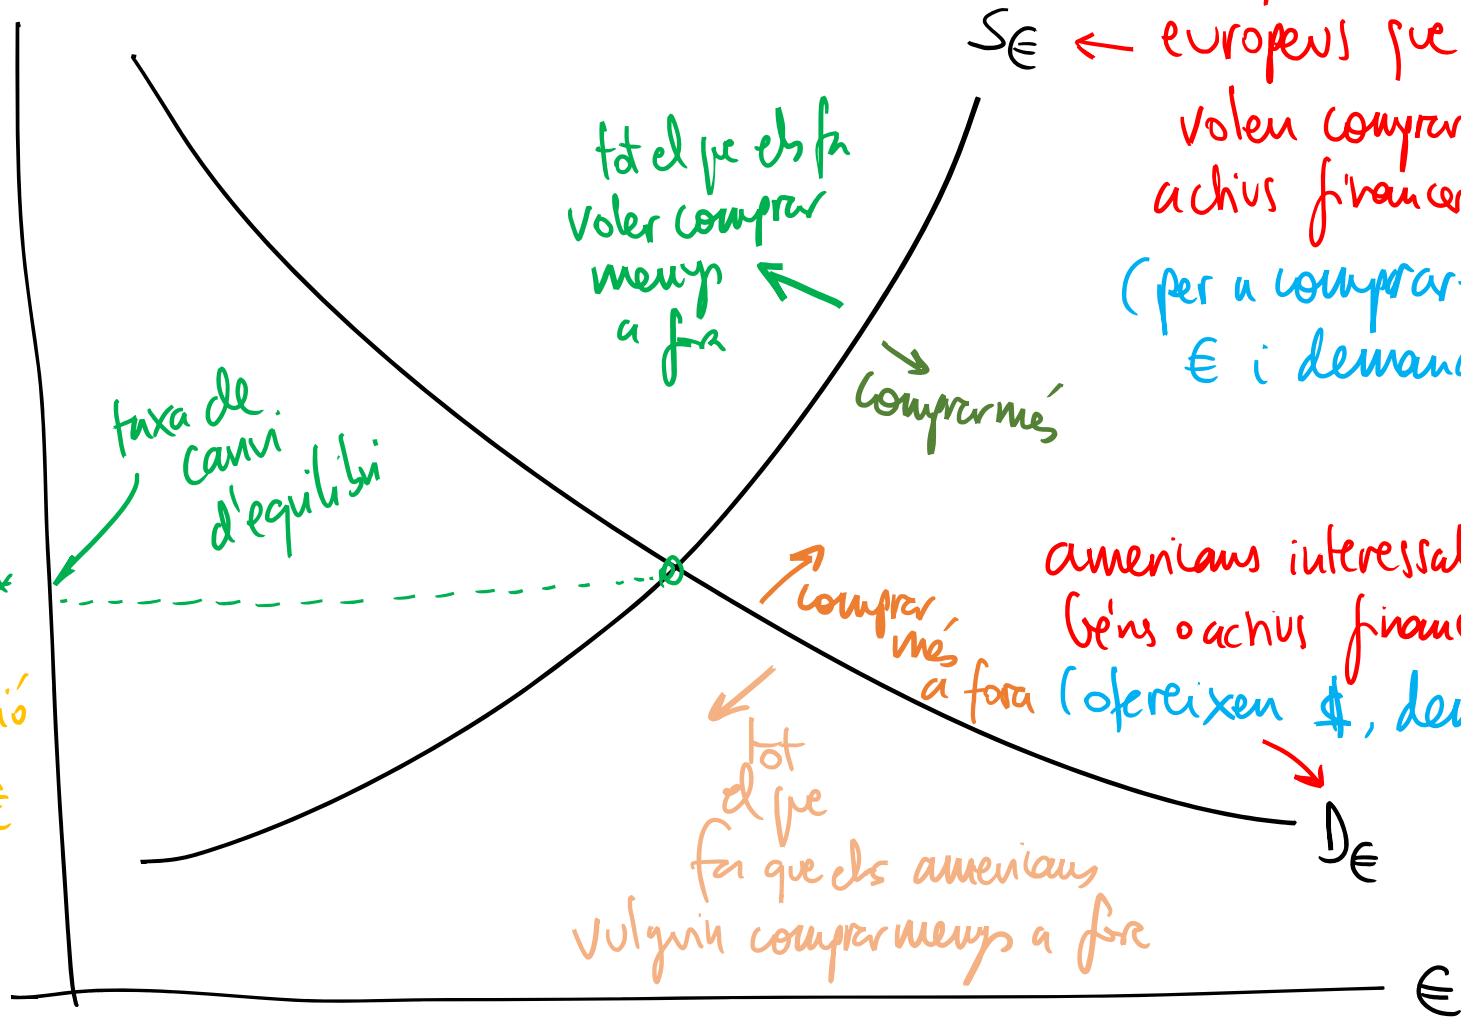 S€
← europeus que
volen comprar
actius finance
(per a comprar-
€ i deman
tot el que els fa
voler comprar
menys
a fora
comprar més
taxa de
canvi
d'equilibri
americans interessa
béns o actius financ
(ofereixen $, de
comprar
més
a fora
tot
el que
fa que els americans
vulguin comprar menys a fora
D€
ió
€
€